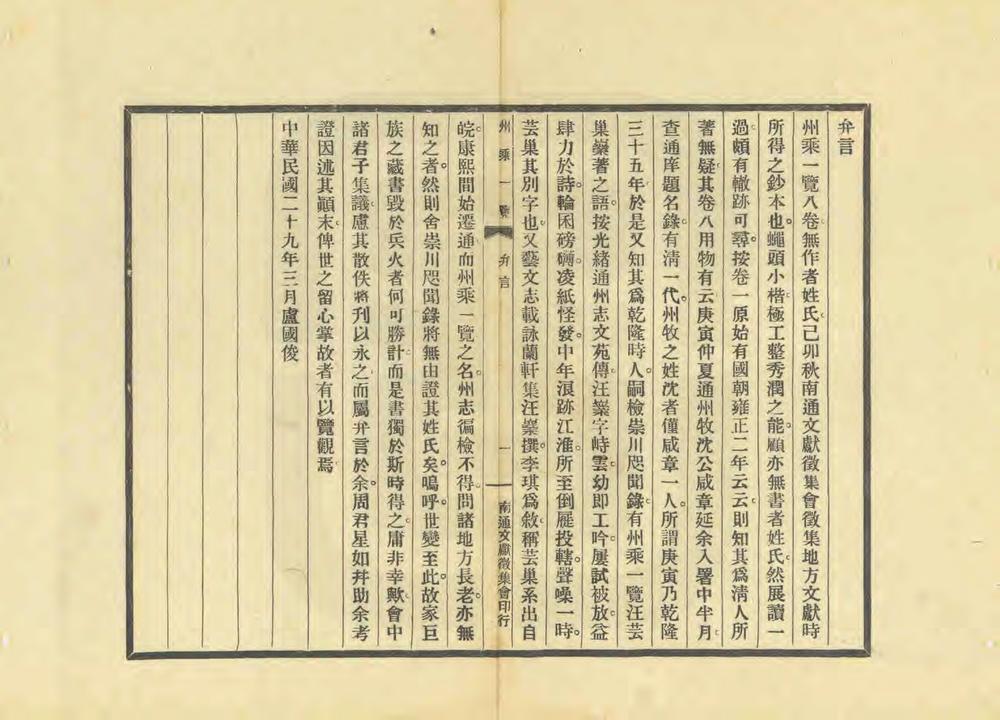 弁言
州乘一覽八卷無作者姓氏己卯秋南通文獻徵集會徵集地方文獻時
所得之鈔本也。蠅頭小楷極工整秀潤之能。顧亦無書者姓氏然展讀一
過。頗有轍跡可尋。按卷一原始有國朝雍正二年云云。則知其爲清人所
著無疑。其卷八用物有云庚寅仲夏通州牧沈公咸章延余入署中半月。
查通庠題名錄。有清一代。州牧之姓沈者僅咸章一人。所謂庚寅乃乾隆
三十五年。於是又知其爲乾隆時人。嗣檢崇川咫聞錄。有州乘一覽汪芸
巢嶪著之語。按光緒通州志文苑傳。汪嶪字峙雲。幼即工吟。屢試被放。益
肆力於詩。輪囷磅礴。凌紙怪發。中年浪跡江淮。所至倒屣投轄。聲噪一時。
芸巢其別字也。又藝文志載詠蘭軒集汪嶪撰。李琪爲敘。稱芸巢系出自
州乘一覽 弁言 一 南通文獻徵集會印行
皖。康熙間始遷通。而州乘一覽之名。州志徧檢不得。問諸地方長老。亦無
知之者。然則舍崇川咫聞錄將無由證其姓氏矣。嗚呼。世變至此。故家巨
族之藏書毀於兵火者何可勝計。而是書獨於斯時得之。庸非幸歟。會中
諸君子集議。慮其散佚將刊以永之。而屬弁言於余。周君星如幷助余考
證。因述其顚末。俾世之留心掌故者有以覽觀焉。
中華民國二十九年三月盧國俊